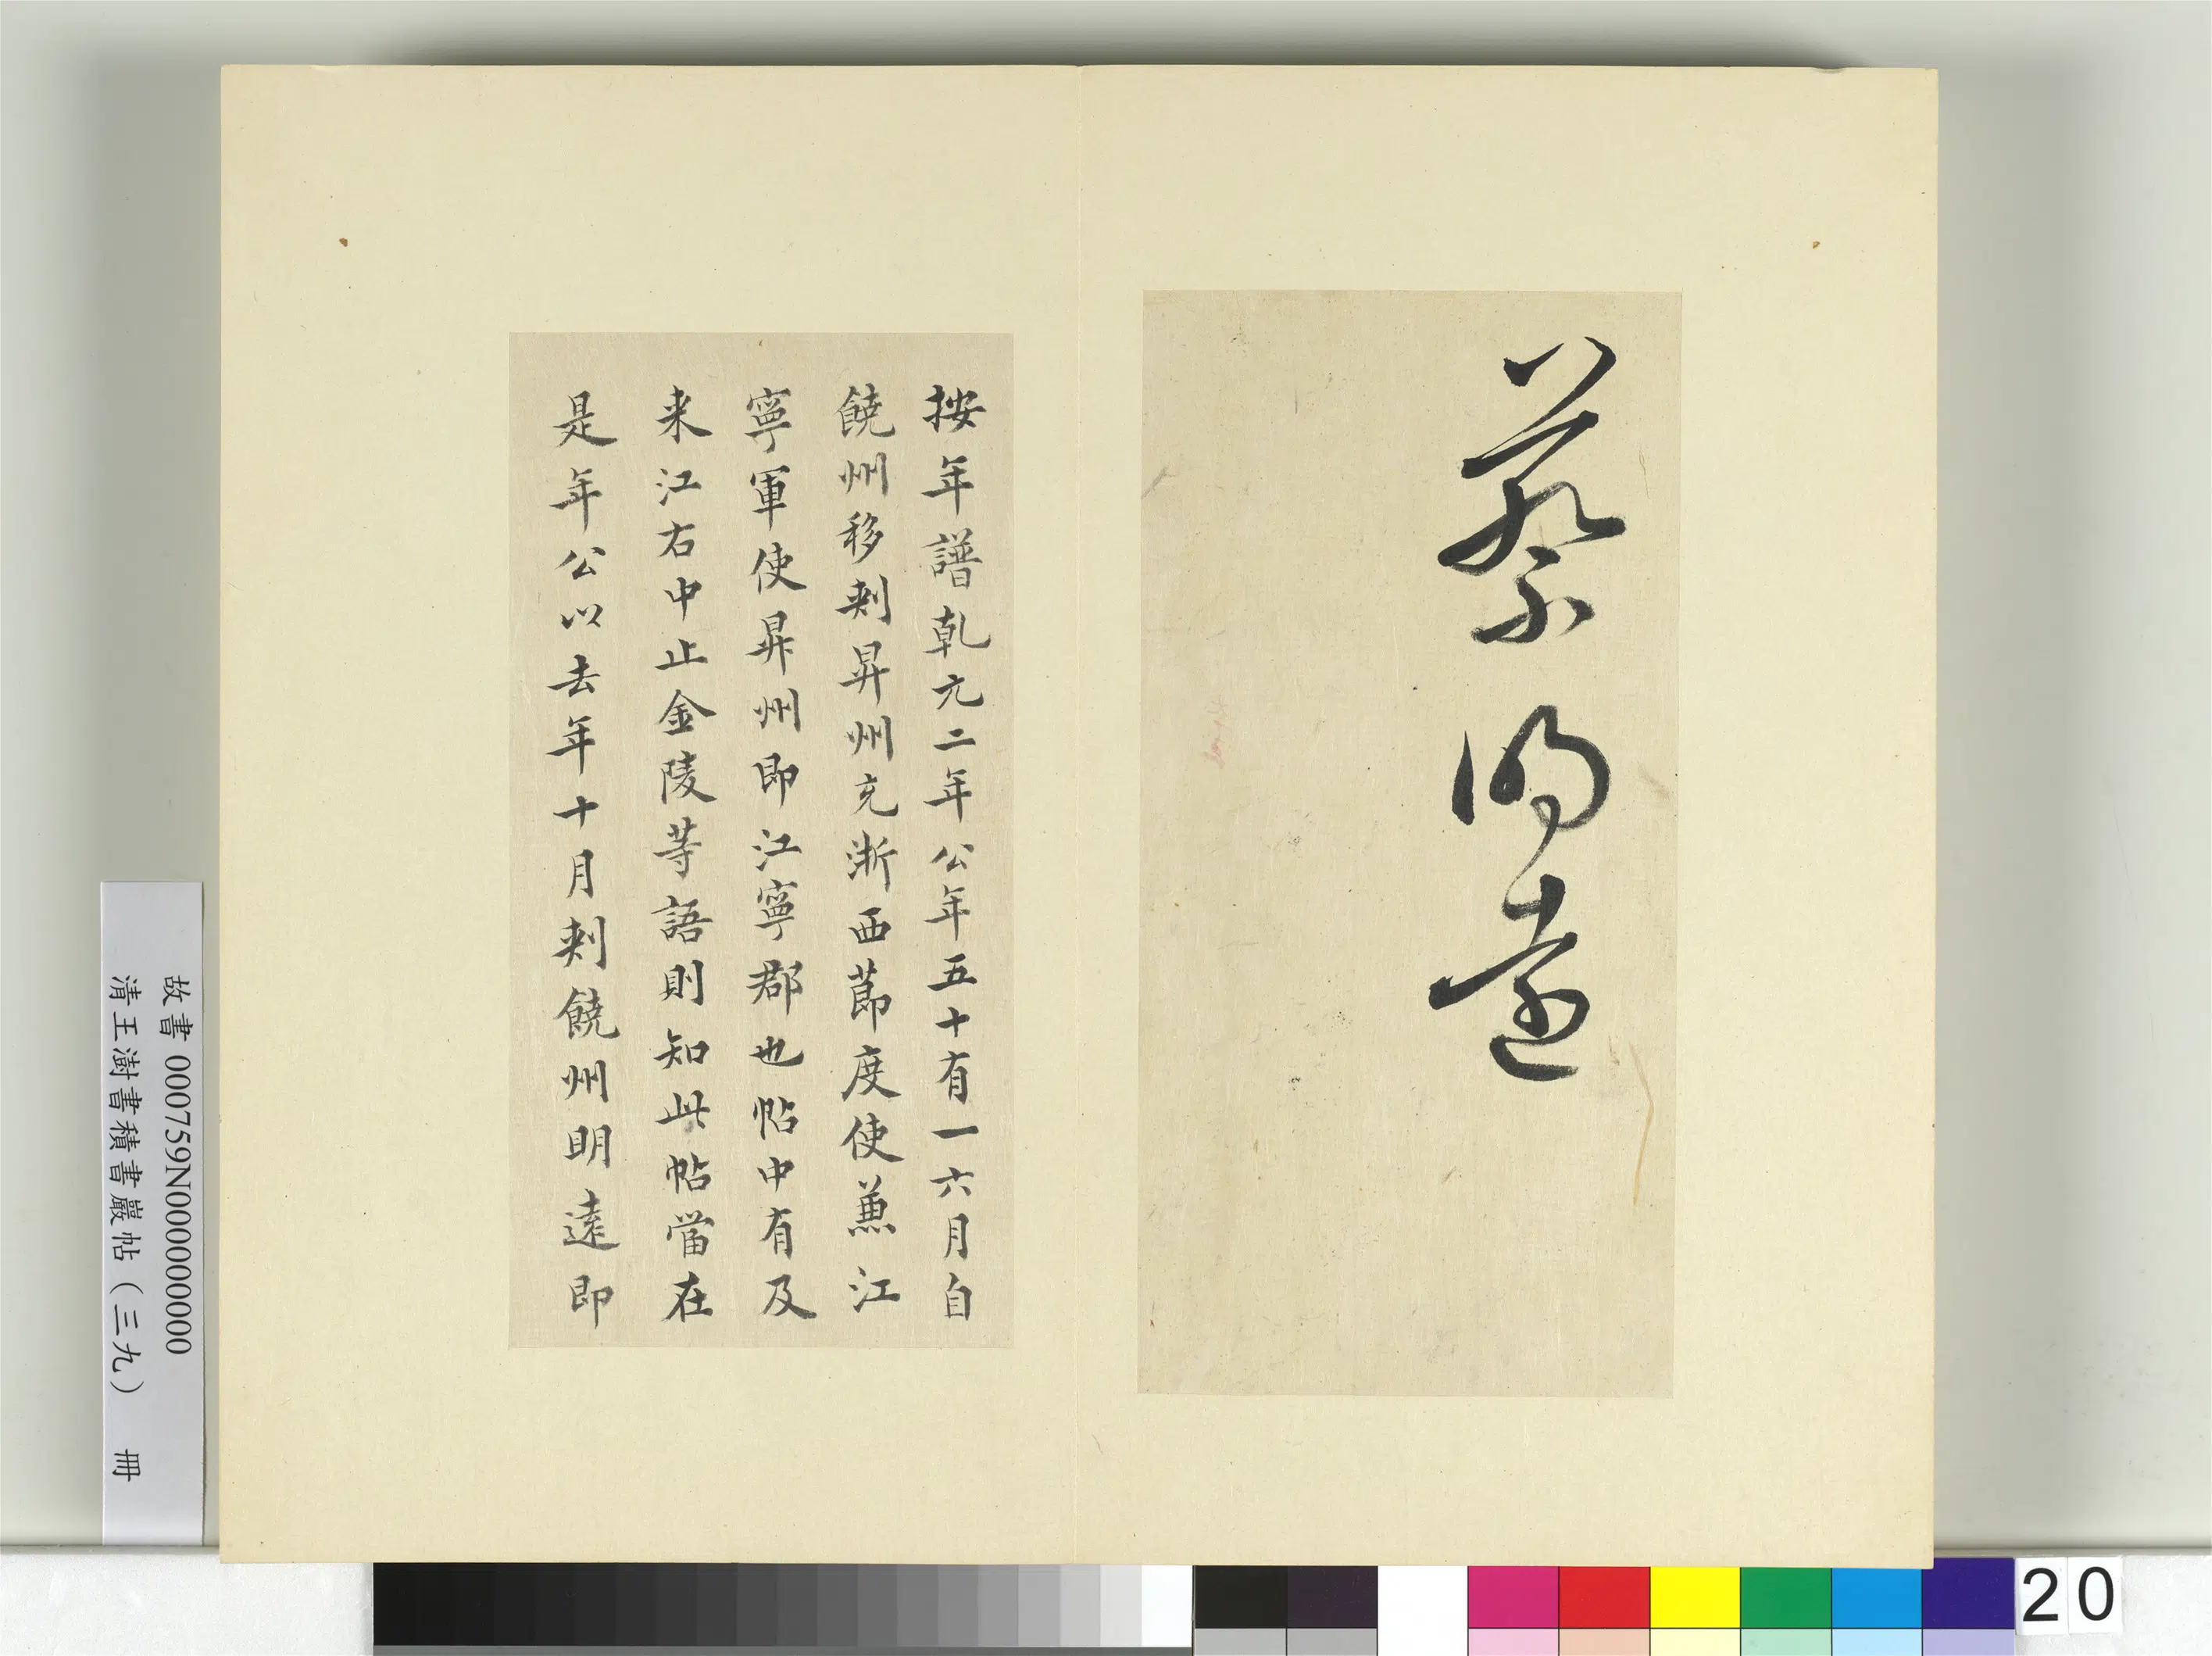 蔡明遠
按年譜乹元二年公年五十有一六月自
饒州移刾昇州充浙西莭度使蒹江
寧軍使昇州即江寧郡也帖中有及
来江右中止金陵等語則知此帖當在
是年公以去年十月刾饒州明遠即
故書 000759N000000000
清王澍書積書巖帖（三九） 冊
20